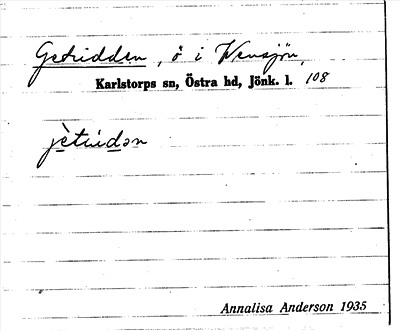 Getridden, ö i Wensjön,
Karlstorps sn, Östra hd, Jönk. l. 108
jètridən
Annalisa Anderson 1935